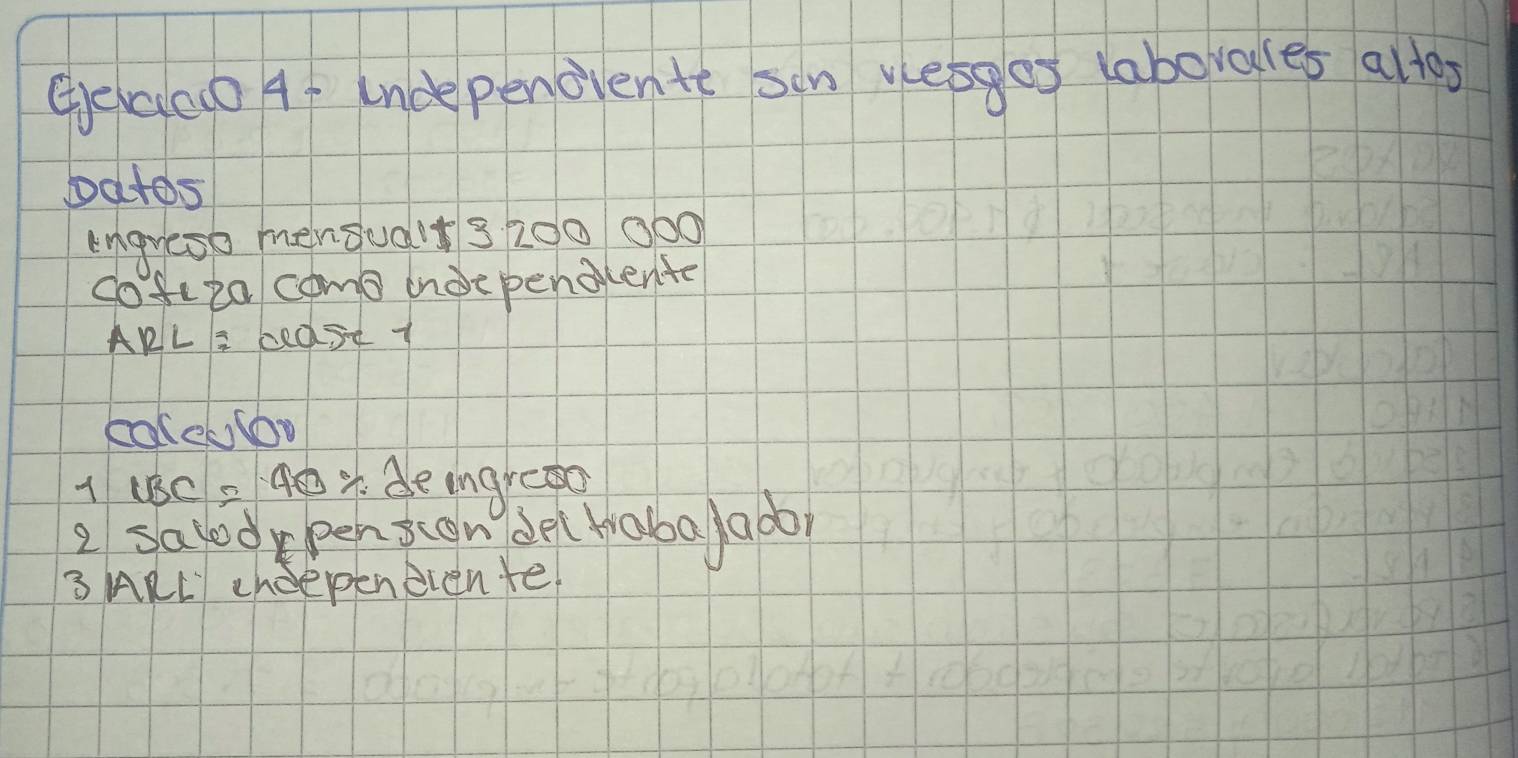 Ejercicio 4- independiente sin riesgos laborales altos
Datos
ingreso mensual $ 3 200 000
cotiza como independiente
ARL = clase 1
calculos
1 IBC = 40 % de ingreso
2 salud y pension del trabajador
3 ARL independiente.